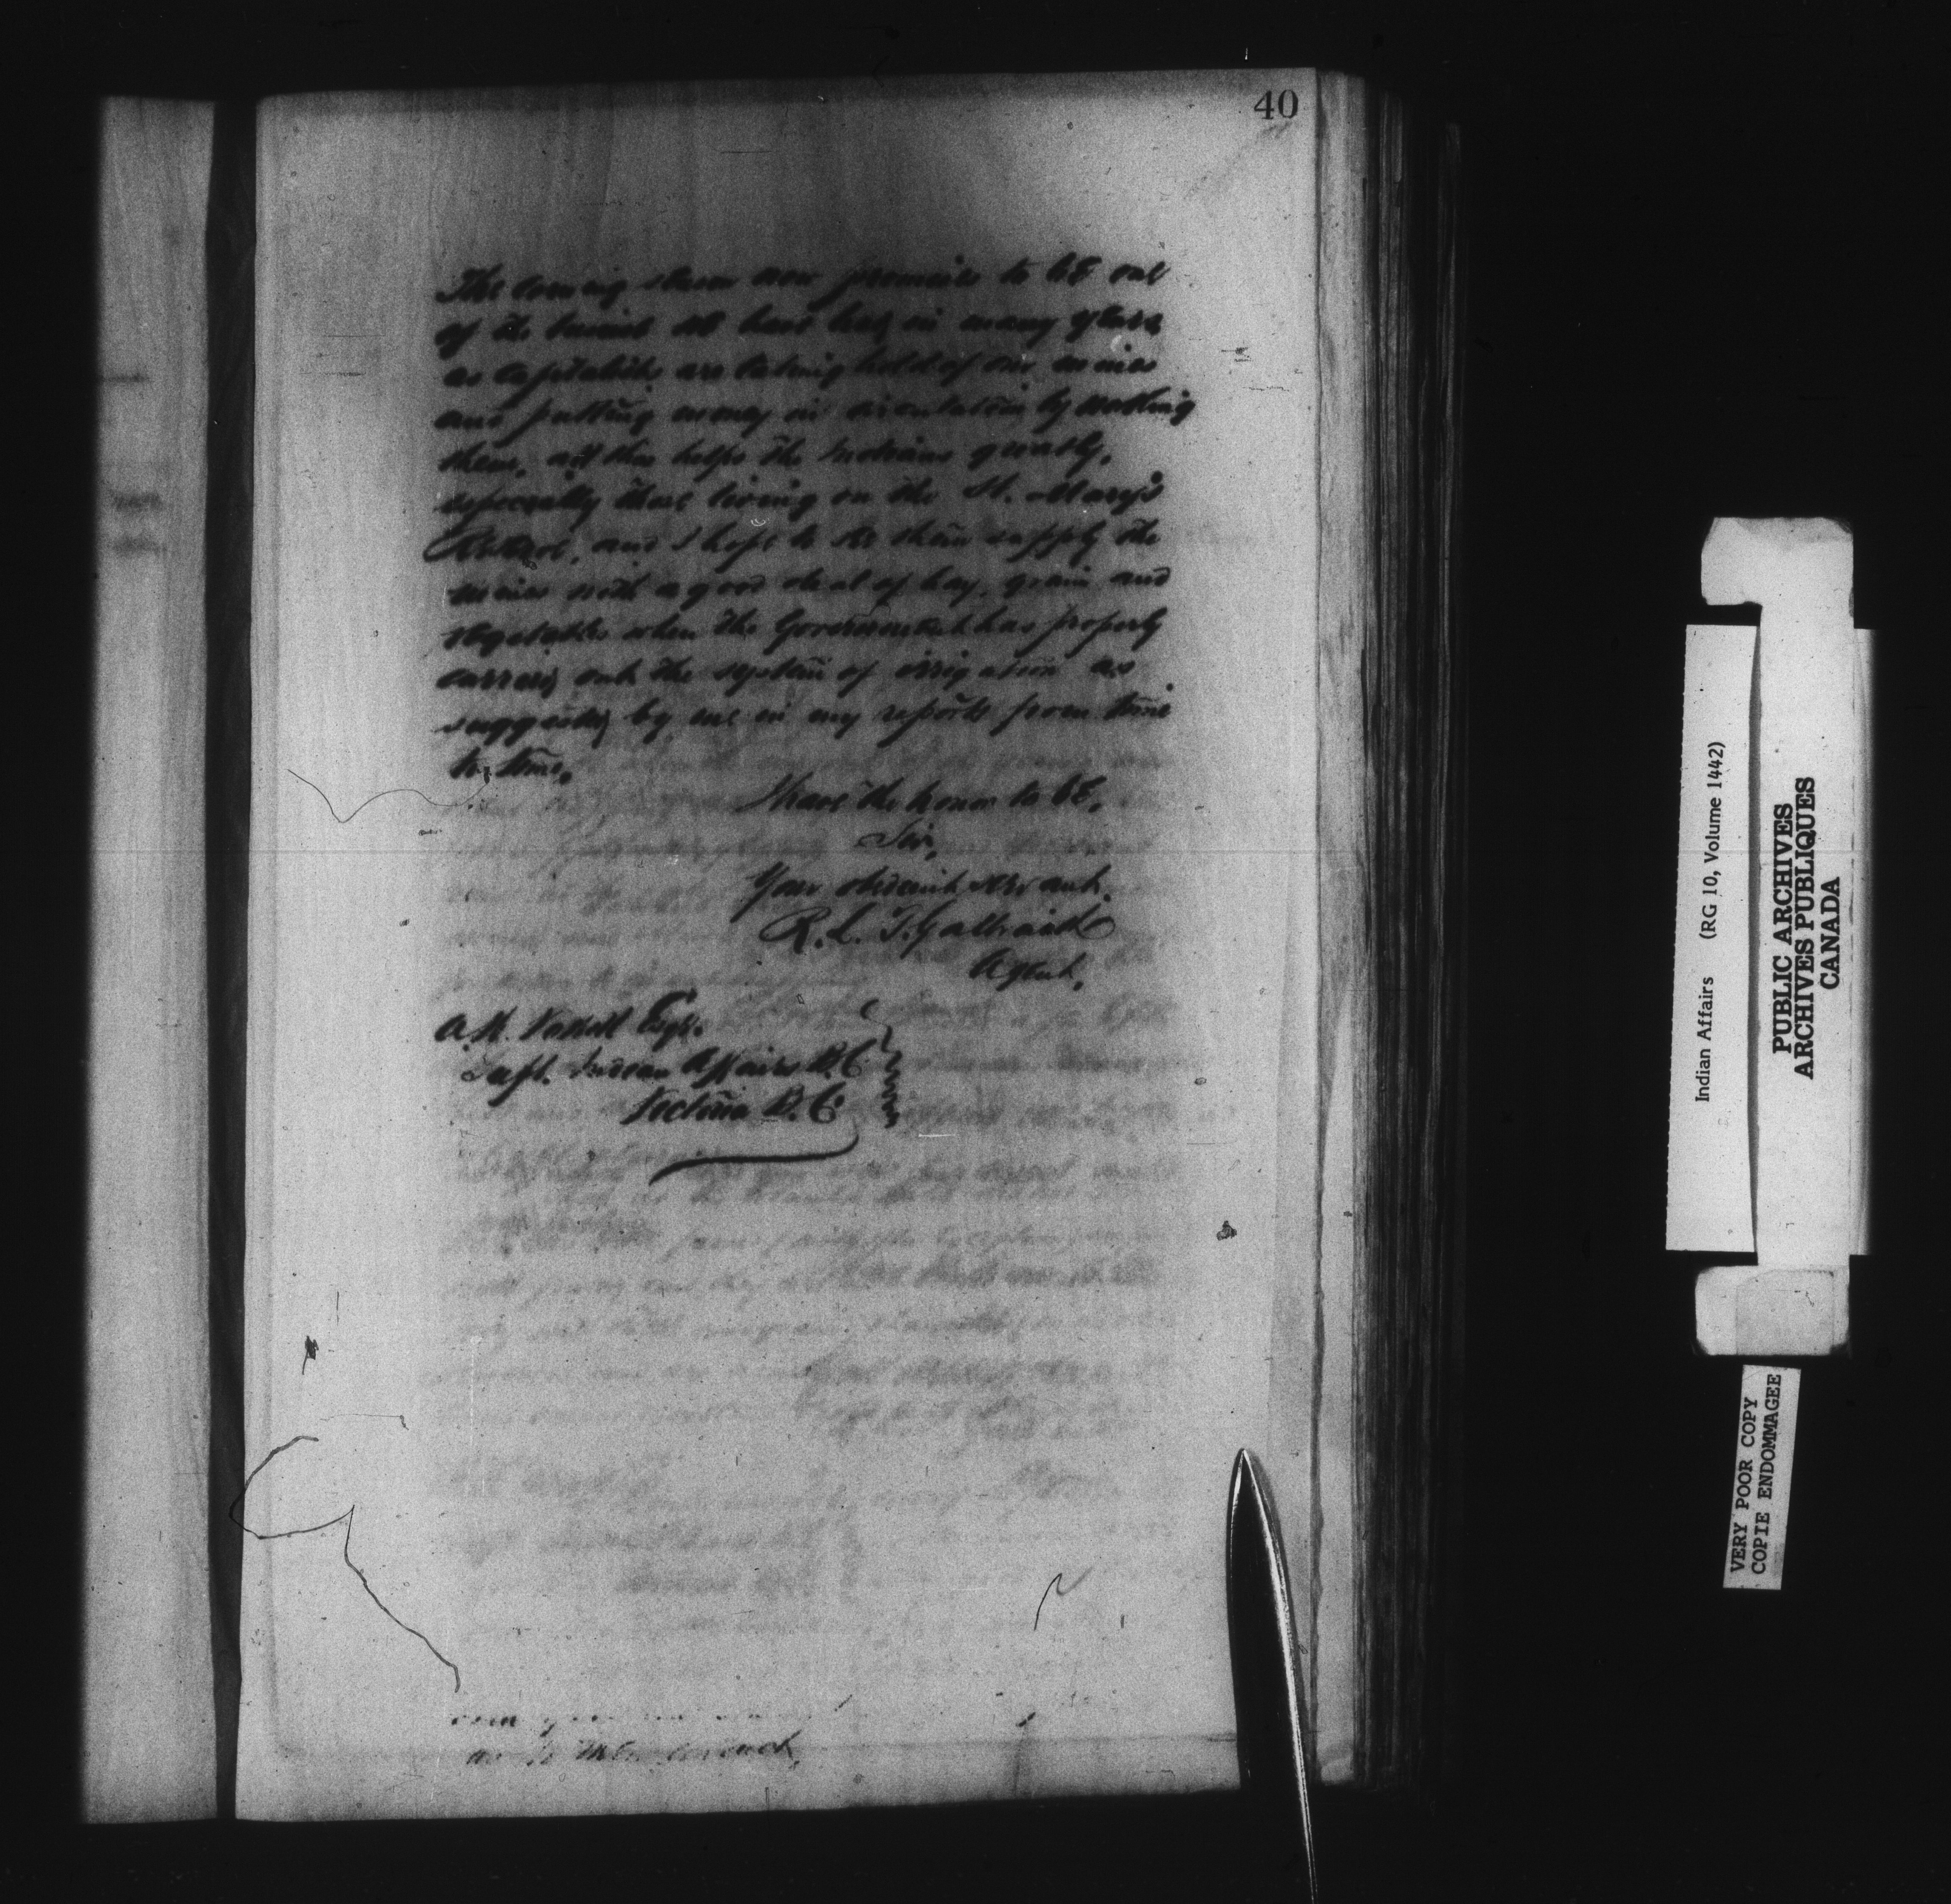 40
The coming season now promises to be one
of the busiest we have had in many years
as capitalists are taking hold of our mines
and putting money in circulation by working
them, all this helps the Indians greatly,
especially those living on the St. Mary's
Reserve, and I hope to see them supply the
mines with a good deal of hay, grain and
vegetables when the Government has properly
carried out the system of irrigation as
suggested by me in my reports from time
to time.
I have the honor to be,
Sir,
Your obedient servant.
R. L. T. Galbraith
Agent.
A. W. Vowell Esqr.
Supt. Indian Affairs B.C.
Victoria B.C.
Indian Affairs (RG 10, Volume 1442)
PUBLIC ARCHIVES
ARCHIVES PUBLIQUES
CANADA
VERY POOR COPY
COPIE ENDOMMAGEE